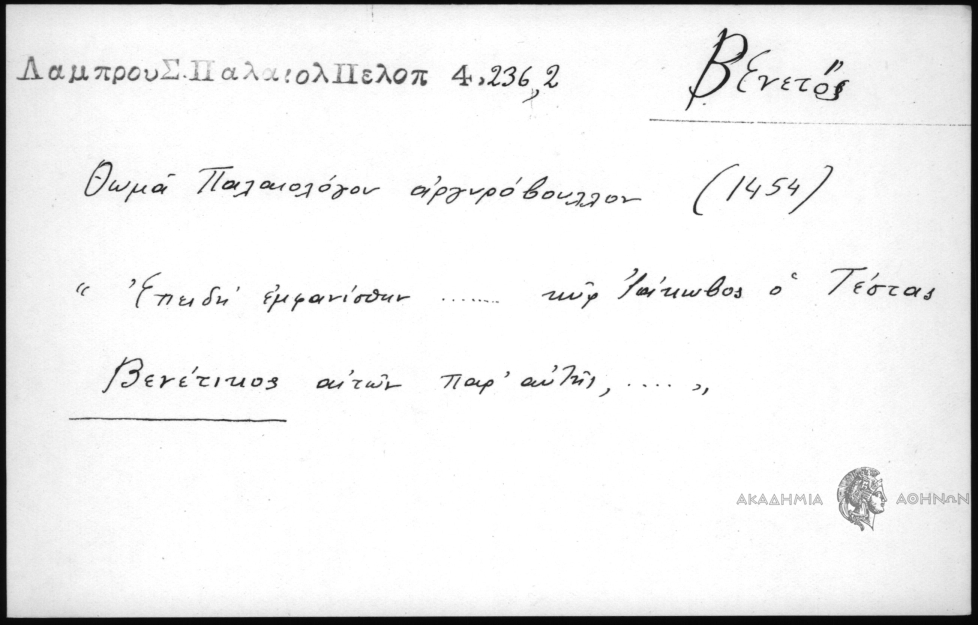 ΛαμπρουΣ.ΠαλαιολΠελοπ 4,236,2
Βενετός
Θωμᾶ Παλαιολόγου ἀργυρόβουλλον (1454)
“ Ἐπειδή ἐμφανίσθην ....... κῦρ Ἰάκωβος ὁ Τέστας
Βενέτικος αἰτῶν παρ' αὐτῆς, ..... „
ΑΚΑΔΗΜΙΑ ΑΘΗΝΩΝ